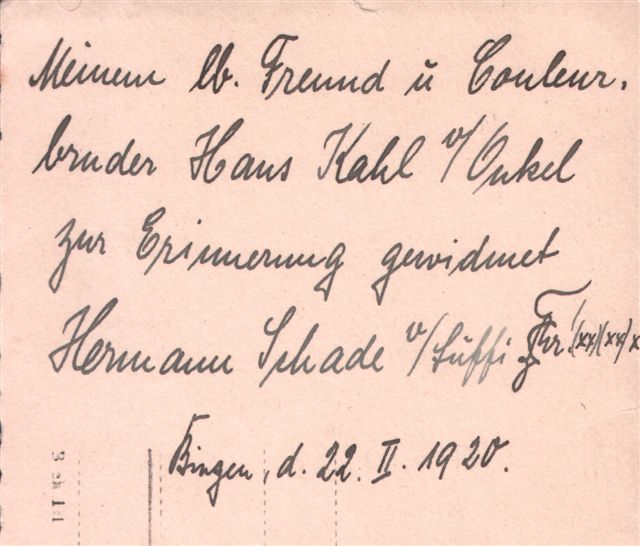 Meinem lb. Freund ü Couleur.
bruder Hans Kahl v/Onkel
zur Erinnerung gewidmet
Hermann Schade v/Süffi Fhr! (xx)(xx)x
Bingen, d. 22. II. 1920.